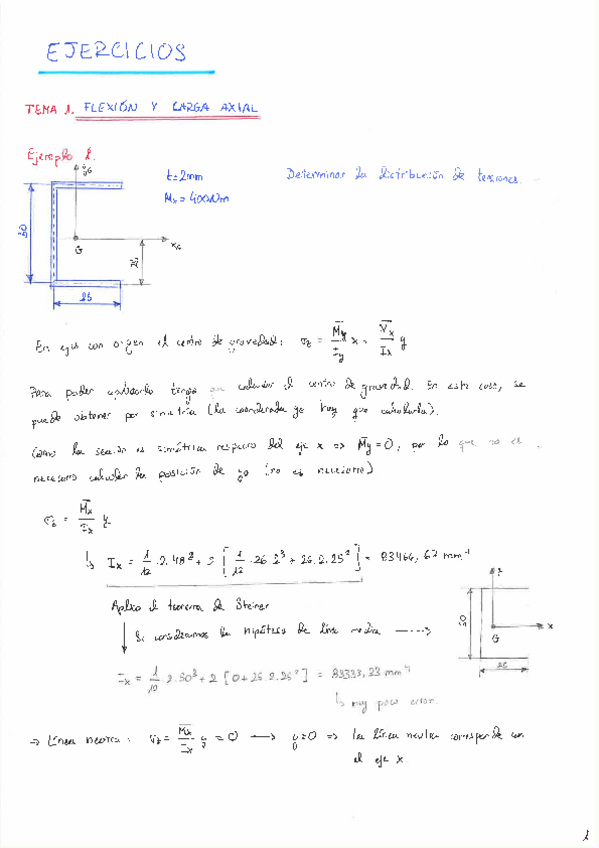 EJERCICIOS
TEMA 1. FLEXIÓN Y CARGA AXIAL
Ejemplo 1.
yG
t=2mm
Determinar la distribución de tensiones.
Mx = 400Nm
50
G
xG
25
25
En ejes con origen el centro de gravedad: σz = My/Iy x + Mx/Ix y
Para poder aplicarlo tengo que calcular el centro de gravedad. En este caso, se
puede obtener por simetría (la coordenada yo hay que calcularla).
Como la sección es simétrica respecto del eje x => My = 0, por lo que no es
necesario calcular la posición de (no es necesario)
σz = Mx/Ix y
↳ Ix = 1/12 · 2 · 48³ + 2 [ 1/12 · 26 · 2³ + 26 · 2 · 25² ] = 83466,67 mm⁴
Aplico el teorema de Steiner
Si consideramos la hipótesis de línea media ---->
50
G
x
25
Ix = 1/12 · 2 · 50³ + 2 [0 + 25 · 2 · 25²] = 83333,33 mm⁴
↳ muy poco error.
→ Línea neutra: σz = Mx/Ix y = 0 → y = 0 => la línea neutra corresponde con
el eje x.
1